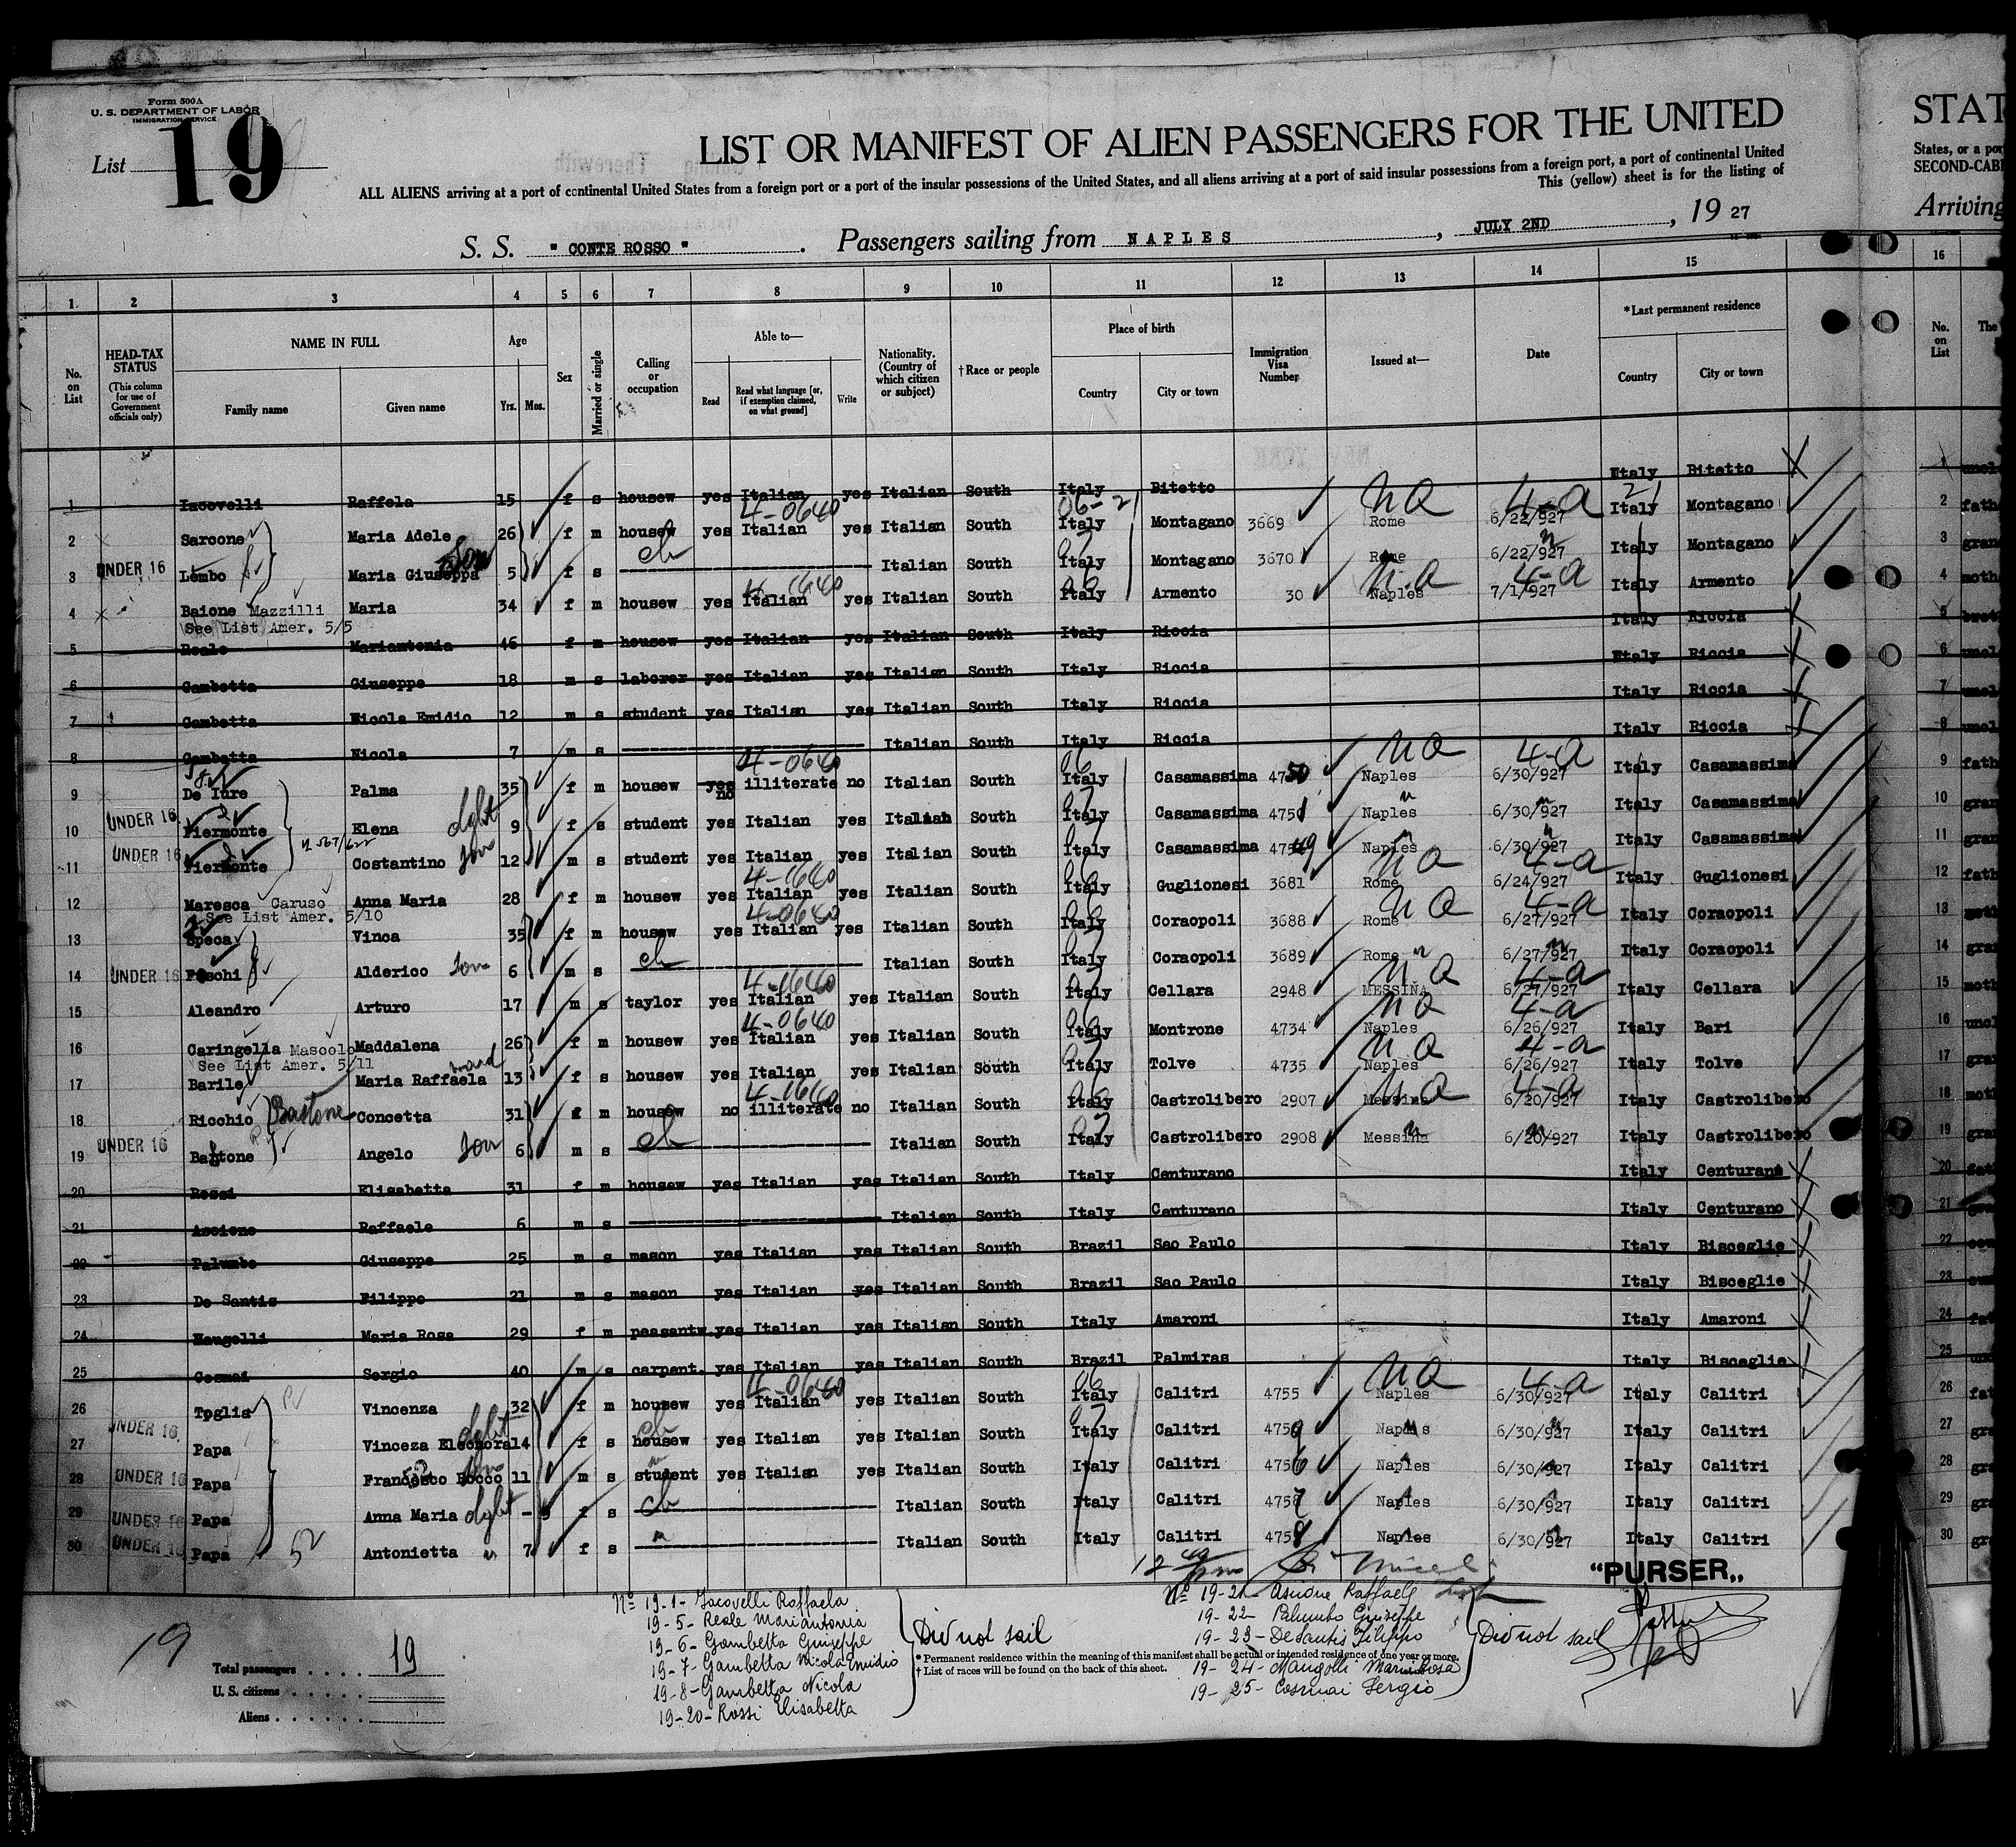 Form 500A
U. S. DEPARTMENT OF LABOR
IMMIGRATION SERVICE
List 19
LIST OR MANIFEST OF ALIEN PASSENGERS FOR THE UNITED
ALL ALIENS arriving at a port of continental United States from a foreign port or a port of the insular possessions of the United States, and all aliens arriving at a port of said insular possessions from a foreign port, a port of continental United
This (yellow) sheet is for the listing of
S. S. "CONTE ROSSO". Passengers sailing from NAPLES, JULY 2ND, 19 27
STAT
States, or a por
SECOND-CABI
Arriving
1. 2 3 4 5 6 7 8 9 10 11 12 13 14 15 16
No. on List
HEAD-TAX STATUS
(This column for use of Government officials only)
NAME IN FULL
Family name Given name
Age
Yrs. Mos.
Sex
Married or single
Calling or occupation
Able to—
Read Read what language [or, if exemption claimed, on what ground] Write
Nationality. (Country of which citizen or subject)
†Race or people
Place of birth
Country City or town
Immigration Visa Number
Issued at—
Date
*Last permanent residence
Country City or town
No. on List
The
1 Iacovelli Raffela 15 f s housew yes Italian yes Italian South Italy Bitetto Italy Bitetto
2 Sarcone Maria Adele 26 f m housew yes Italian 4-0640 yes Italian South Italy Montagano 3669 Rome 6/22/927 Italy Montagano
3 UNDER 16 Lembo Maria Giuseppa 5 f s ch Italian South Italy Montagano 3670 Rome 6/22/927 Italy Montagano
4 Baione Mazzilli Maria 34 f m housew yes Italian 4-1640 yes Italian South Italy Armento 30 Naples 7/1/927 Italy Armento
See List Amer. 5/5
5 Reale Mariantonia 46 f m housew yes Italian yes Italian South Italy Riccia Italy Riccia
6 Gambetta Giuseppe 18 m s laborer yes Italian yes Italian South Italy Riccia Italy Riccia
7 Gambetta Nicola Emidio 12 m s student yes Italian yes Italian South Italy Riccia Italy Riccia
8 Gambetta Nicola 7 m s Italian South Italy Riccia Italy Riccia
9 De Iure Palma 35 f m housew yes no illiterate 4-0640 no Italian South Italy Casamassima 4750 Naples 6/30/927 Italy Casamassima
10 UNDER 16 Piermonte Elena dght 9 f s student yes Italian yes Italian South Italy Casamassima 4751 Naples 6/30/927 Italy Casamassima
11 UNDER 16 Piermonte Costantino son 12 m s student yes Italian yes Italian South Italy Casamassima 4749 Naples 6/30/927 Italy Casamassima
12 Maresca Caruso Anna Maria 28 f m housew yes Italian 4-1640 yes Italian South Italy Guglionesi 3681 Rome 6/24/927 Italy Guglionesi
See List Amer. 5/10
13 Speca Vinca 35 f m housew yes Italian 4-0640 yes Italian South Italy Coraopoli 3688 Rome 6/27/927 Italy Coraopoli
14 UNDER 16 Foschi Alderico son 6 m s ch Italian South Italy Coraopoli 3689 Rome 6/27/927 Italy Coraopoli
15 Aleandro Arturo 17 m s taylor yes Italian 4-1640 yes Italian South Italy Cellara 2948 MESSINA 6/27/927 Italy Cellara
16 Caringella Mascolo Maddalena 26 f m housew yes Italian 4-0640 yes Italian South Italy Montrone 4734 Naples 6/26/927 Italy Bari
See List Amer. 5/11
17 Barile Maria Raffaela 13 f s housew yes Italian yes Italian South Italy Tolve 4735 Naples 6/26/927 Italy Tolve
18 Ricchio Bastone Concetta 31 f m housew no illiterate 4-1640 no Italian South Italy Castrolibero 2907 Messina 6/20/927 Italy Castrolibero
19 UNDER 16 Bastone Angelo son 6 m s ch Italian South Italy Castrolibero 2908 Messina 6/20/927 Italy Castrolibero
20 Rossi Elisabetta 31 f m housew yes Italian yes Italian South Italy Centurano Italy Centurano
21 Ascione Raffaele 6 m s Italian South Italy Centurano Italy Centurano
22 Palumbo Giuseppe 25 m s mason yes Italian yes Italian South Brazil Sao Paulo Italy Bisceglie
23 De Santis Filippo 21 m s mason yes Italian yes Italian South Brazil Sao Paulo Italy Bisceglie
24 Maugolli Maria Rosa 29 f m peasantw. yes Italian yes Italian South Italy Amaroni Italy Amaroni
25 Cosmai Sergio 40 m s carpent. yes Italian yes Italian South Brazil Palmiras Italy Bisceglie
26 Toglia Vincenza 32 f m housew yes Italian 4-0640 yes Italian South Italy Calitri 4755 Naples 6/30/927 Italy Calitri
27 UNDER 16 Papa Vinceza Elechora dght 14 f s housew yes Italian yes Italian South Italy Calitri 4759 Naples 6/30/927 Italy Calitri
28 UNDER 16 Papa Francesco Rocco son 11 m s student yes Italian yes Italian South Italy Calitri 4756 Naples 6/30/927 Italy Calitri
29 UNDER 16 Papa Anna Maria dght - 9 f s ch Italian South Italy Calitri 4757 Naples 6/30/927 Italy Calitri
30 UNDER 16 Papa Antonietta 7 f s Italian South Italy Calitri 4758 Naples 6/30/927 Italy Calitri
"PURSER"
19
Total passengers . . . . 19
U. S. citizens . . . . .
Aliens . . . . . .
Nº 19-1- Iacovelli Raffaela
19-5- Reale Mariantonia
19-6- Gambetta Giuseppe
19-7- Gambetta Nicola Emidio
19-8- Gambetta Nicola
19-20- Rossi Elisabetta
Did not sail
Nº 19-21- Ascione Raffaele
19-22- Palumbo Giuseppe
19-23- De Santis Filippo
19-24- Maugolli Maria Rosa
19-25- Cosmai Sergio
Did not sail
* Permanent residence within the meaning of this manifest shall be actual or intended residence of one year or more.
† List of races will be found on the back of this sheet.